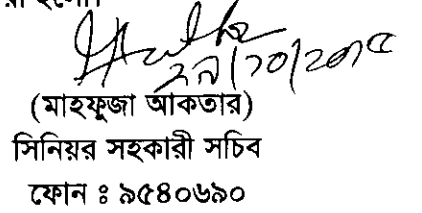 হলো।
২৯/১০/২০১৫
(মাহফুজা আকতার)
সিনিয়র সহকারী সচিব
ফোন ঃ ৯৫৪০৬৯০